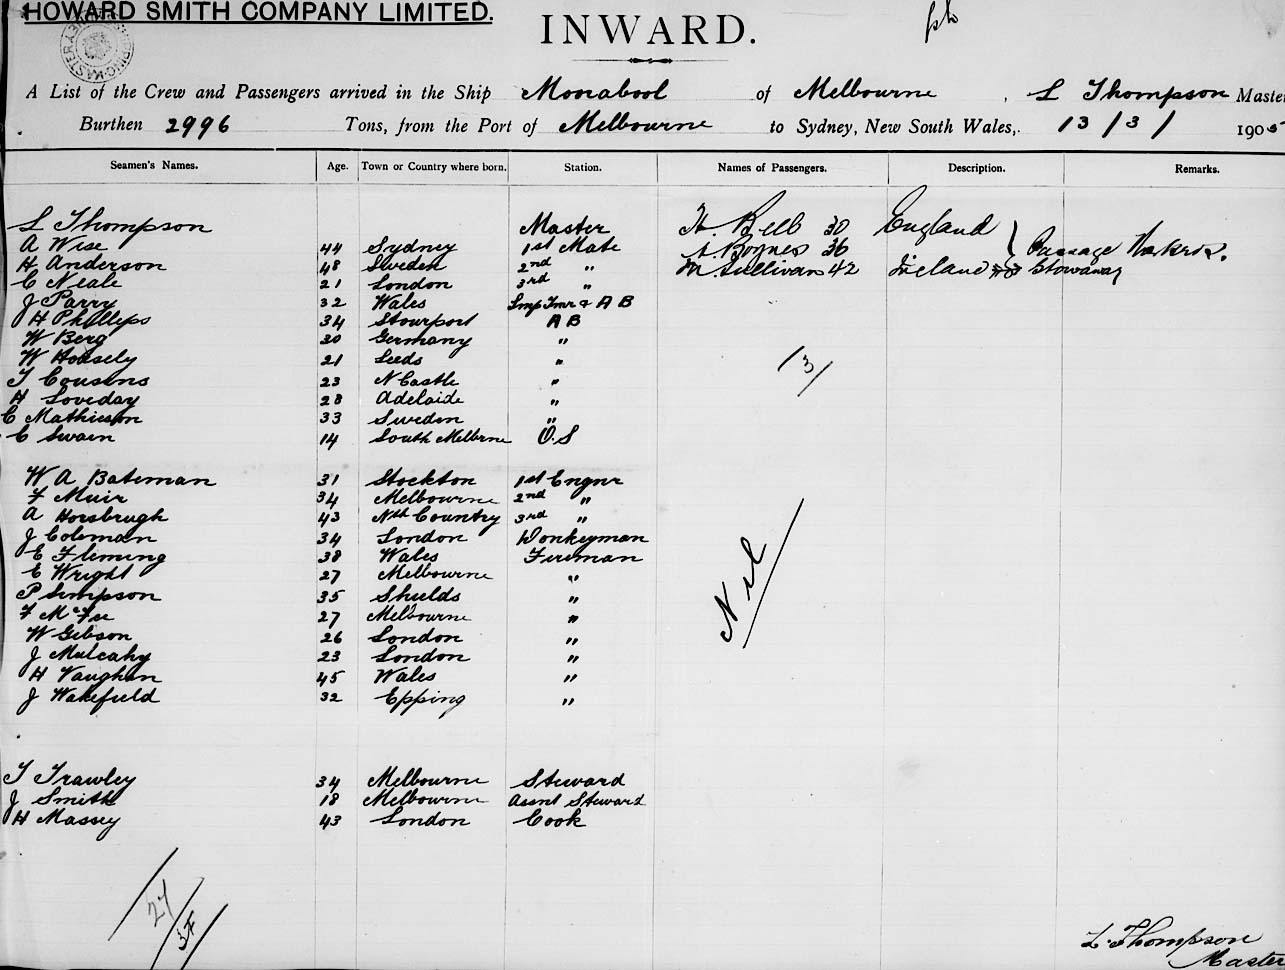 HOWARD SMITH COMPANY LIMITED.
INWARD.
A List of the Crew and Passengers arrived in the Ship Moorabool of Melbourne, L Thompson Master
Burthen 2996 Tons, from the Port of Melbourne to Sydney, New South Wales, 13/3/ 1905
Seamen's Names. Age. Town or Country where born. Station. Names of Passengers. Description. Remarks.
L Thompson Master H Bell 30 England
A Wise 44 Sydney 1st Mate A. Boynes 36 } Passage Workers.
H Anderson 48 Sweden 2nd " M Sullivan 42 Ireland Stowaway
C Neale 21 London 3rd "
J Parry 32 Wales Lmp Tmr & A B
H Phillips 34 Stourport A B
W Berg 30 Germany "
W Housely 21 Leeds "
T Cousens 23 N Castle "
H Loveday 28 Adelaide "
C Mathieson 33 Sweden "
C Swain 14 South Melbrne O.S
W A Bateman 31 Stockton 1st Engnr
F Muir 34 Melbourne 2nd "
A Horsbrugh 43 Nth Country 3rd "
J Coleman 34 London Donkeyman
E Fleming 38 Wales Fireman
E Wright 27 Melbourne "
P Simpson 35 Shields "
F McFee 27 Melbourne "
W Gibson 26 London "
J Mulcahy 23 London "
H Vaughan 45 Wales "
J Wakefield 32 Epping "
/3/
Nil
T Trawley 34 Melbourne Steward
J Smith 18 Melbourne Assnt Steward
H Massey 43 London Cook
27
3F
L. Thompson
Master